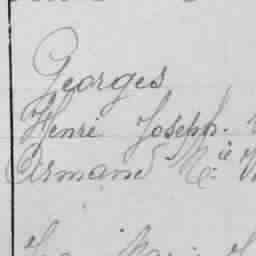 Georges
Henri Joseph.
Armand M.ie